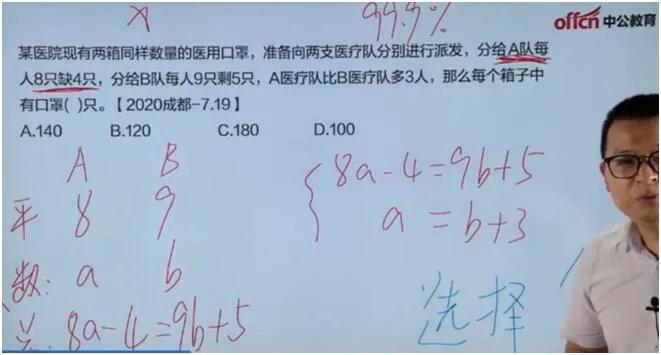 99.9%
offcn 中公教育
某医院现有两箱同样数量的医用口罩，准备向两支医疗队分别进行派发，分给A队每
人8只缺4只，分给B队每人9只剩5只，A医疗队比B医疗队多3人，那么每个箱子中
有口罩( )只。【2020成都-7.19】
A.140 B.120 C.180 D.100
A B
平 8 9
数: a b
8a-4=9b+5
{ 8a-4=9b+5
a=b+3
选择